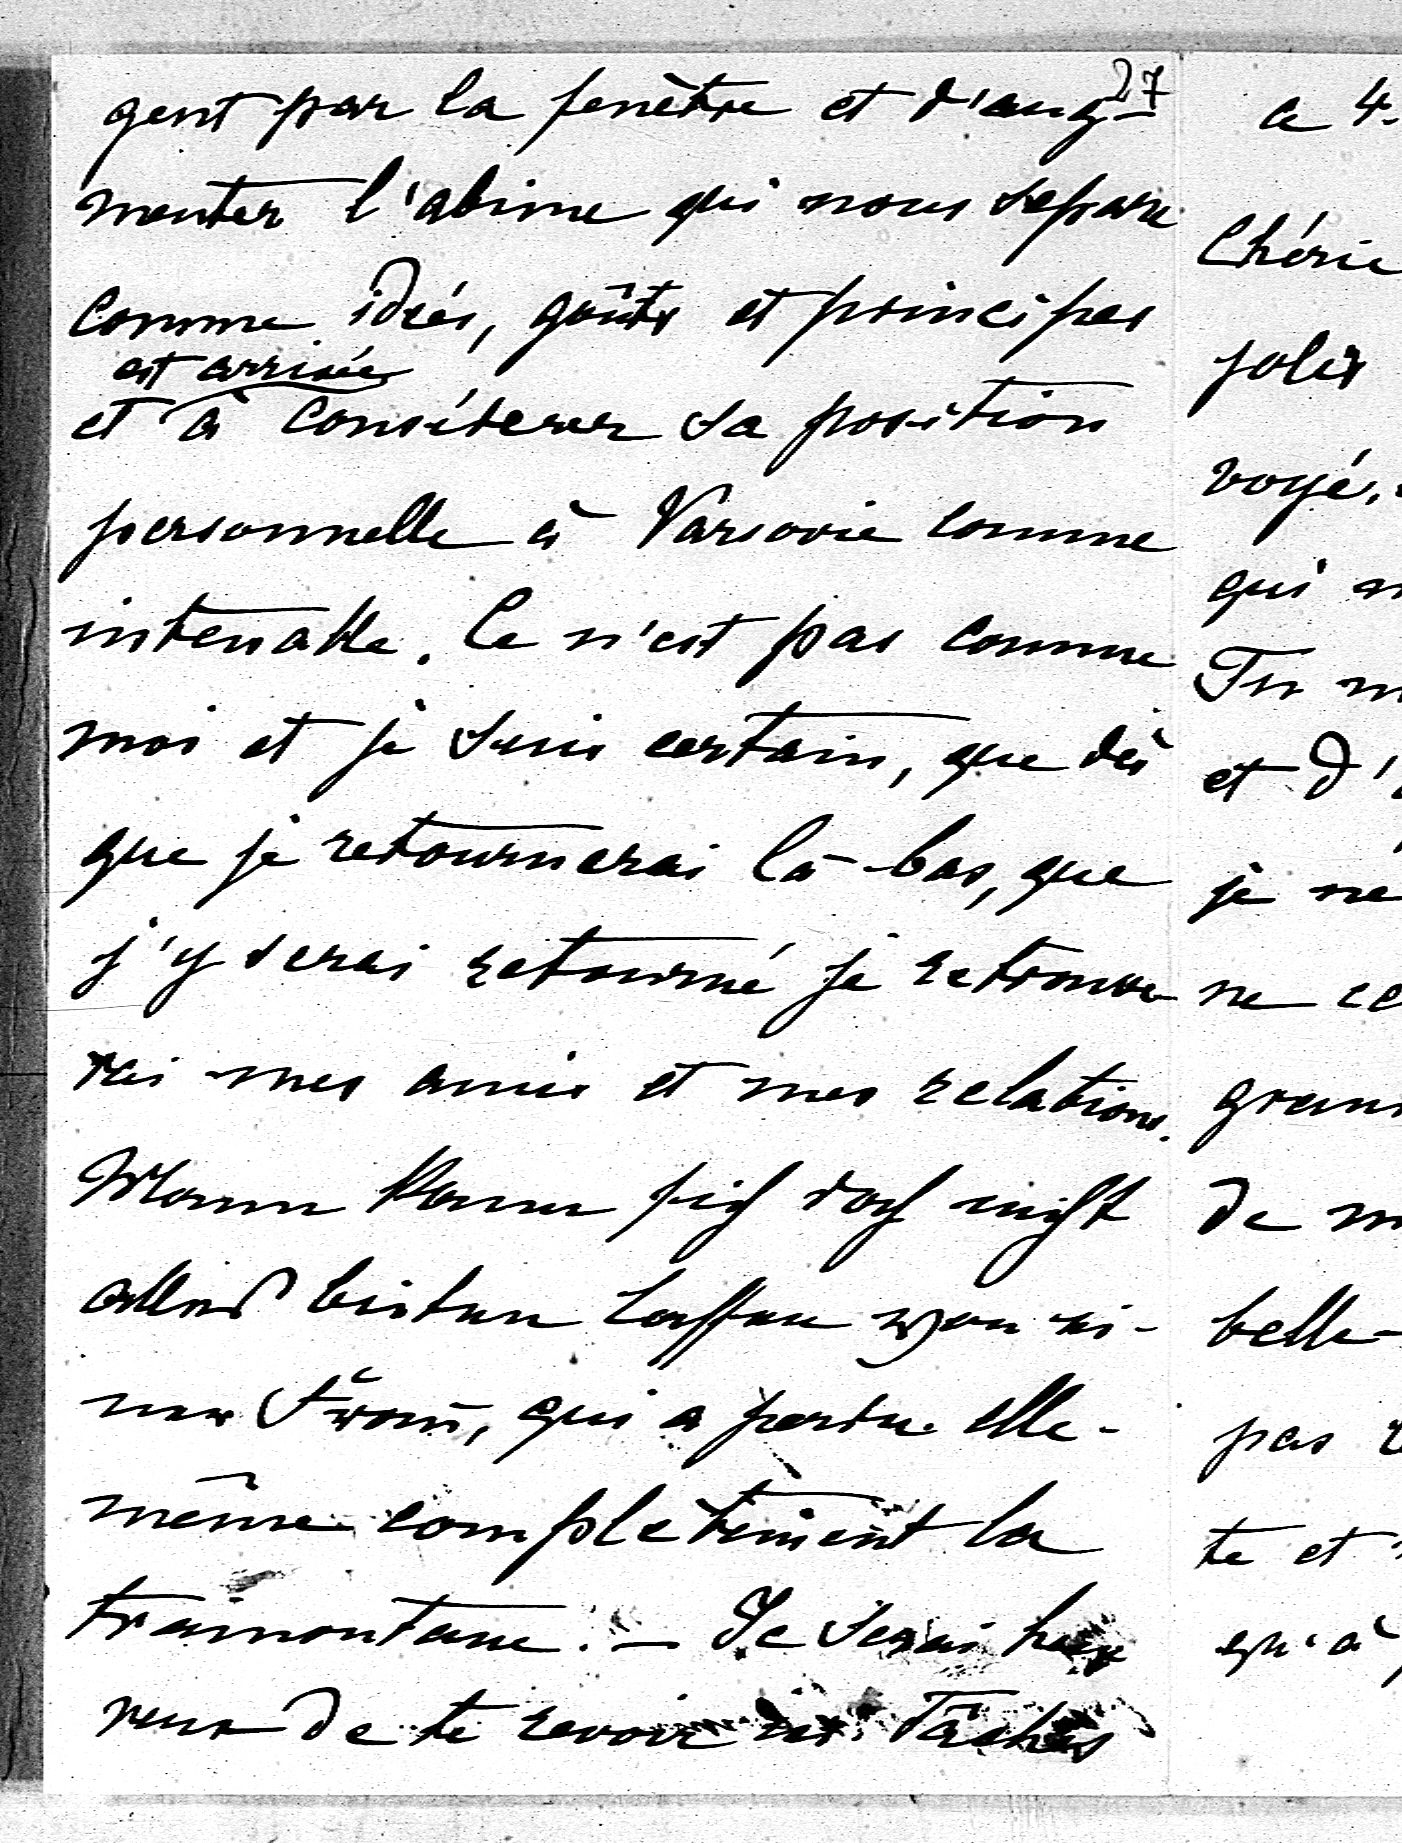 27
gent par la fenêtre et d'aug-
menter l'abime qui nous separe
comme idées, goûts et principes
est arrivée
et à considerer sa position
personnelle à Varsovie comme
intenable. Ce n'est pas comme
moi et je suis certain, que dès
que je retournerai là-bas, que
j'y serai retourné je retrouve-
rai mes amis et mes relations.
Mann kann sich doch nicht
alles bieten lassen von ei-
ner Frau, qui a perdu elle-
même complètement la
tramontane. — Je serai heu
reux de te revoir ici. Tâches
a 4.
Chérie
jolis
voyé,
qui
Tu
et d'
je ne
ne
gran
de
belle-
pas
te et
qu'à